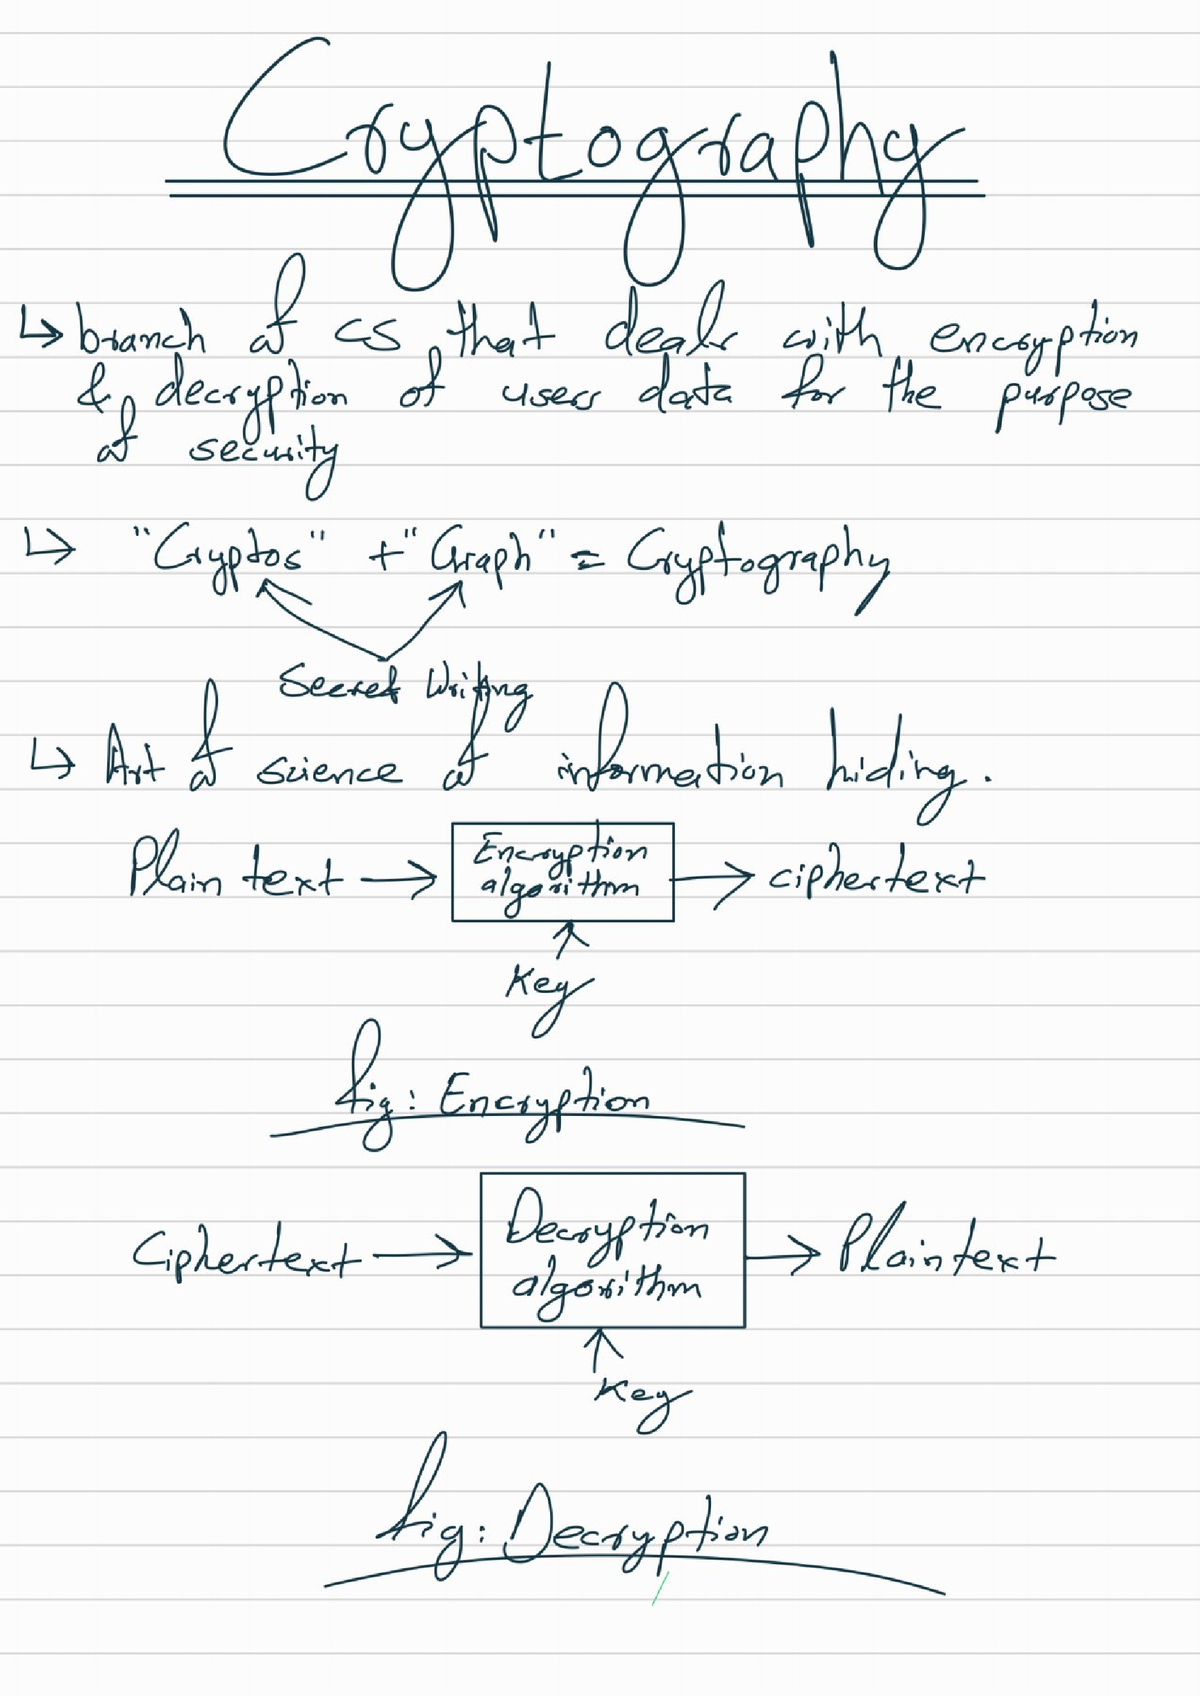 Cryptography
↳ branch of CS that deals with encryption
& decryption of users data for the purpose
of security
↳ "Cryptos" + "Graph" = Cryptography
Secret Writing
↳ Art of science of information hiding.
Plain text → Encryption algorithm → ciphertext
Key
fig: Encryption
Ciphertext → Decryption algorithm → Plaintext
Key
fig: Decryption